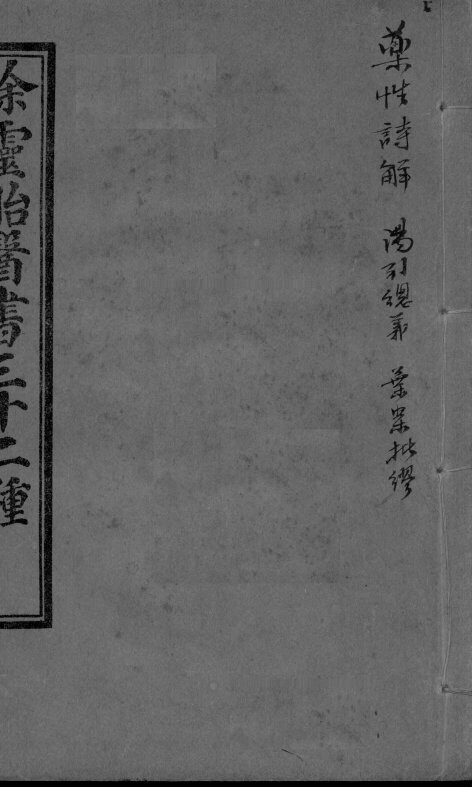 藥性詩解 湯引總義 葉案批繆
徐靈胎醫書三十二種